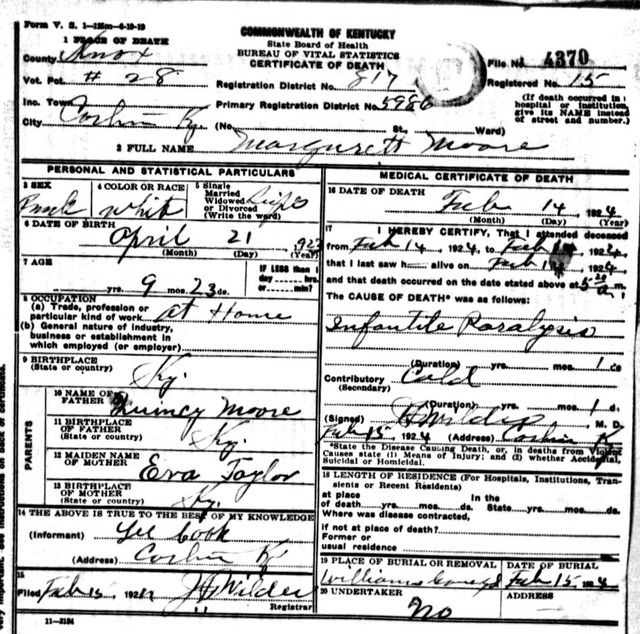 Form V. S. 1—
COMMONWEALTH OF KENTUCKY
State Board of Health
BUREAU OF VITAL STATISTICS
CERTIFICATE OF DEATH
File No. 4370
1 PLACE OF DEATH
County Knox
Vot. Pct # 28
Registration District No. 817
Registered No. 15
Inc. Town
Primary Registration District No. 5986
(If death occurred in hospital or institution, give its NAME instead of street and number.)
City Corbin Ky. (No. St., Ward)
2 FULL NAME Margureth Moore
PERSONAL AND STATISTICAL PARTICULARS
3 SEX
4 COLOR OR RACE whit
5 Single
Married
Widowed
or Divorced
(Write the word)
6 DATE OF BIRTH
April 21 192
(Month) (Day) (Year)
7 AGE
yrs. 9 mos. 23 ds.
IF LESS than 1
day hrs.
or min.?
8 OCCUPATION
(a) Trade, profession or
particular kind of work at Home
(b) General nature of industry,
business or establishment in
which employed (or employer)
9 BIRTHPLACE
(State or country)
Ky.
PARENTS
10 NAME OF
FATHER Quincy Moore
11 BIRTHPLACE
OF FATHER
(State or country) Ky.
12 MAIDEN NAME
OF MOTHER Eva Taylor
13 BIRTHPLACE
OF MOTHER
(State or country) Ky.
14 THE ABOVE IS TRUE TO THE BEST OF MY KNOWLEDGE
(Informant) Cook
(Address) Corbin K
15
Filed Feb 15 192 Wilder
Registrar
11—3184
MEDICAL CERTIFICATE OF DEATH
16 DATE OF DEATH
Feb 14, 1924
(Month) (Day) (Year)
17 I HEREBY CERTIFY, That I attended deceased
from Feb 14, 1924, to Feb 14, 1924,
that I last saw h alive on Feb 14, 1924
and that death occurred on the date stated above at 5 a m.
The CAUSE OF DEATH* was as follows:
Infantile Paralysis
(Duration) yrs. mos. 1 ds
Contributory Cold
(Secondary)
(Duration) yrs. mos. 1 d.
(Signed) Wilder M. D.
Feb 15, 1924 (Address) Corbin K
*State the Disease Causing Death, or, in deaths from Violent
Causes state (1) Means of Injury; and (2) whether Accidental,
Suicidal or Homicidal.
18 LENGTH OF RESIDENCE (For Hospitals, Institutions, Transients or Recent Residents)
at place In the
of death yrs. mos. ds. State yrs. mos. ds.
Where was disease contracted,
if not at place of death?
Former or
usual residence
19 PLACE OF BURIAL OR REMOVAL
Williams
DATE OF BURIAL
Feb 15 1924
20 UNDERTAKER
No
ADDRESS